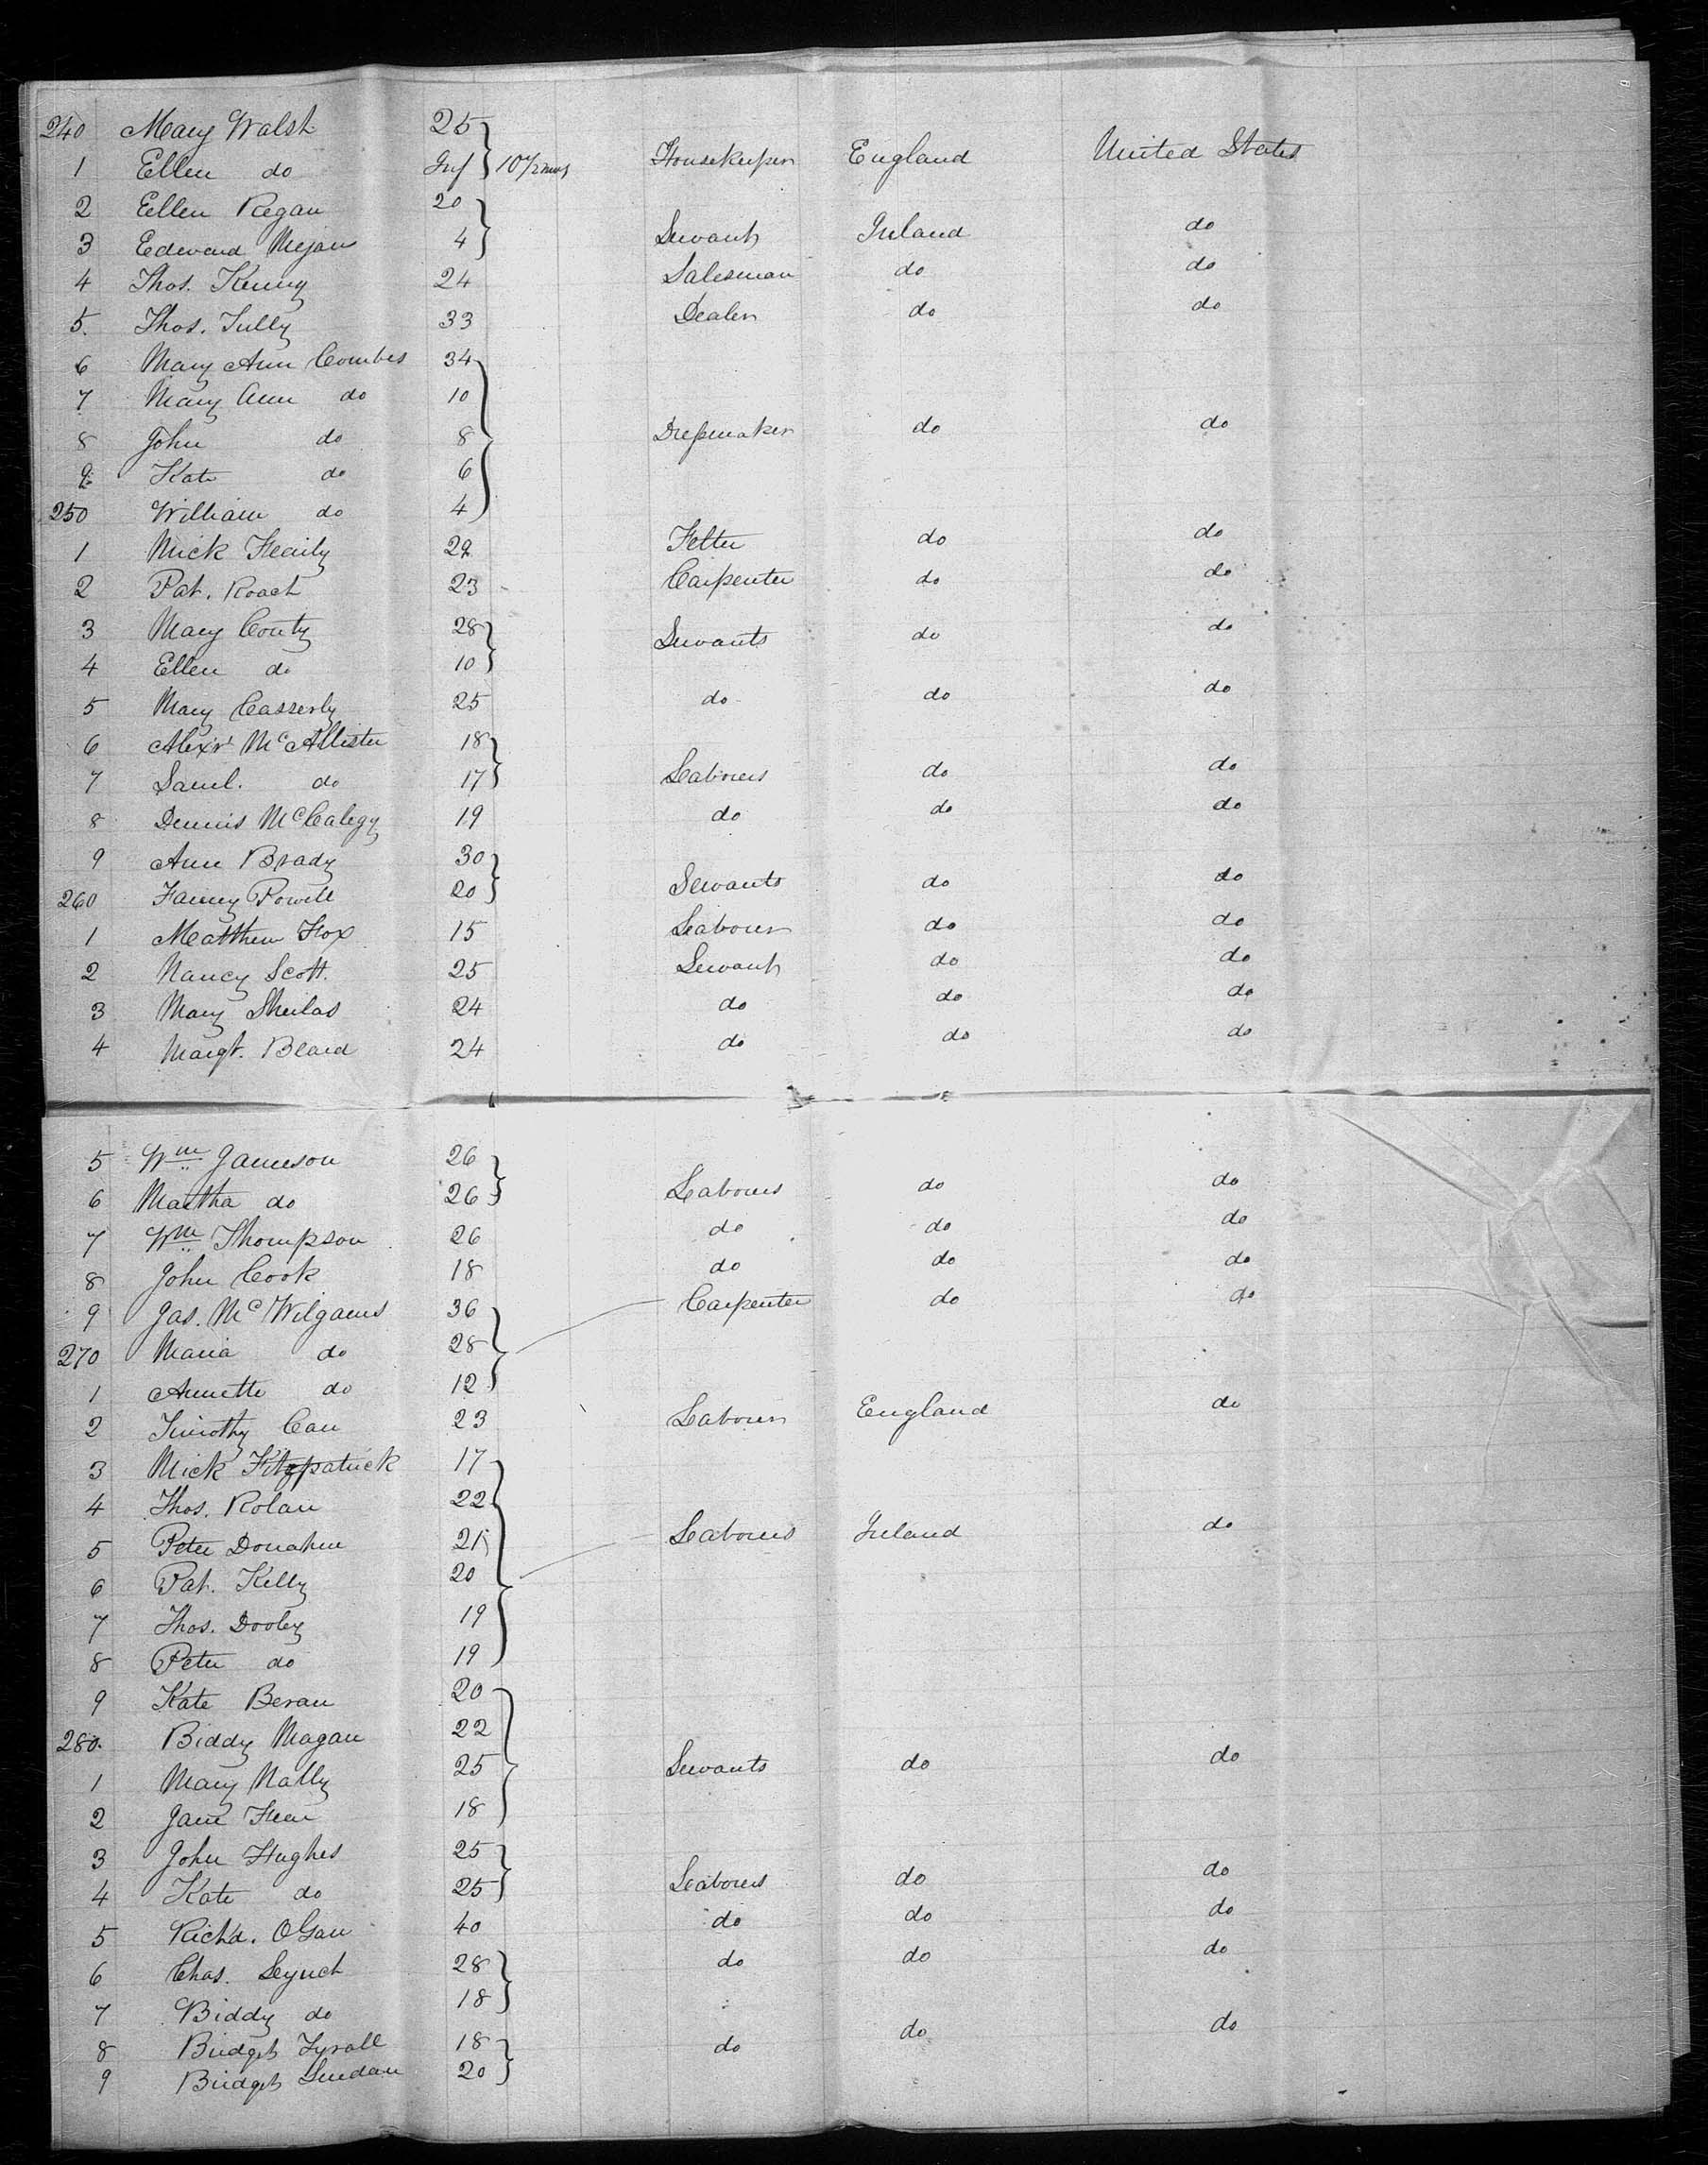 240 Mary Walsh 25 Housekeeper England United States
1 Ellen do Inf 10 1/2 mos
2 Ellen Regan 20
3 Edward 4 Servant Ireland do
4 Thos. Kenny 24 Salesman do do
5. Thos. Tully 33 Dealer do do
6 Mary Ann Combes 34
7 Mary Ann do 10
8 John do 8 Dressmaker do do
9 Kate do 6
250 William do 4
1 Mick 29 do do
2 Pat. Roach 23 Carpenter do do
3 Mary Conty 28 Servants do do
4 Ellen do 10
5 Mary Casserly 25 do do do
6 Alexr McAllister 18
7 Saml. do 17 Labourers do do
8 Dennis 19 do do do
9 Ann Brady 30
260 Fanny Powell 20 Servants do do
1 Matthew Fox 15 Labourer do do
2 Nancy Scott. 25 Servant do do
3 Mary 24 do do do
4 Margt. 24 do do do
5 Wm Jameson 26
6 Martha do 26 Labourers do do
7 Wm Thompson 26 do do do
8 John Cook 18 do do do
9 Jas. McWilgams 36 Carpenter do do
270 Maria do 28
1 Annette do 12
2 Timothy 23 Labourer England do
3 Mick Fitzpatrick 17
4 Thos. Rolan 22
5 Peter Donahue 21 Labourers Ireland do
6 Pat. Kelly 20
7 Thos. Dooley 19
8 Peter do 19
9 Kate Beran 20
280. Biddy Magan 22
1 Mary Nally 25 Servants do do
2 Jane 18
3 John Hughes 25
4 Kate do 25 Labourers do do
5 Richd. OGan 40 do do do
6 Chas. Lynch 28 do do do
7 Biddy do 18
8 Bridget Tyrall 18 do do do
9 Bridget 20